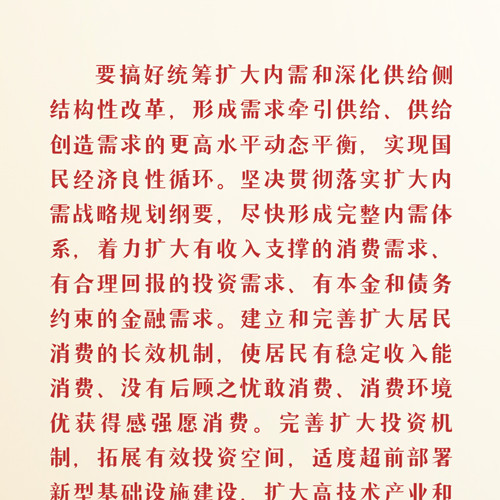 要搞好统筹扩大内需和深化供给侧
结构性改革，形成需求牵引供给、供给
创造需求的更高水平动态平衡，实现国
民经济良性循环。坚决贯彻落实扩大内
需战略规划纲要，尽快形成完整内需体
系，着力扩大有收入支撑的消费需求、
有合理回报的投资需求、有本金和债务
约束的金融需求。建立和完善扩大居民
消费的长效机制，使居民有稳定收入能
消费、没有后顾之忧敢消费、消费环境
优获得感强愿消费。完善扩大投资机
制，拓展有效投资空间，适度超前部署
新型基础设施建设，扩大高技术产业和